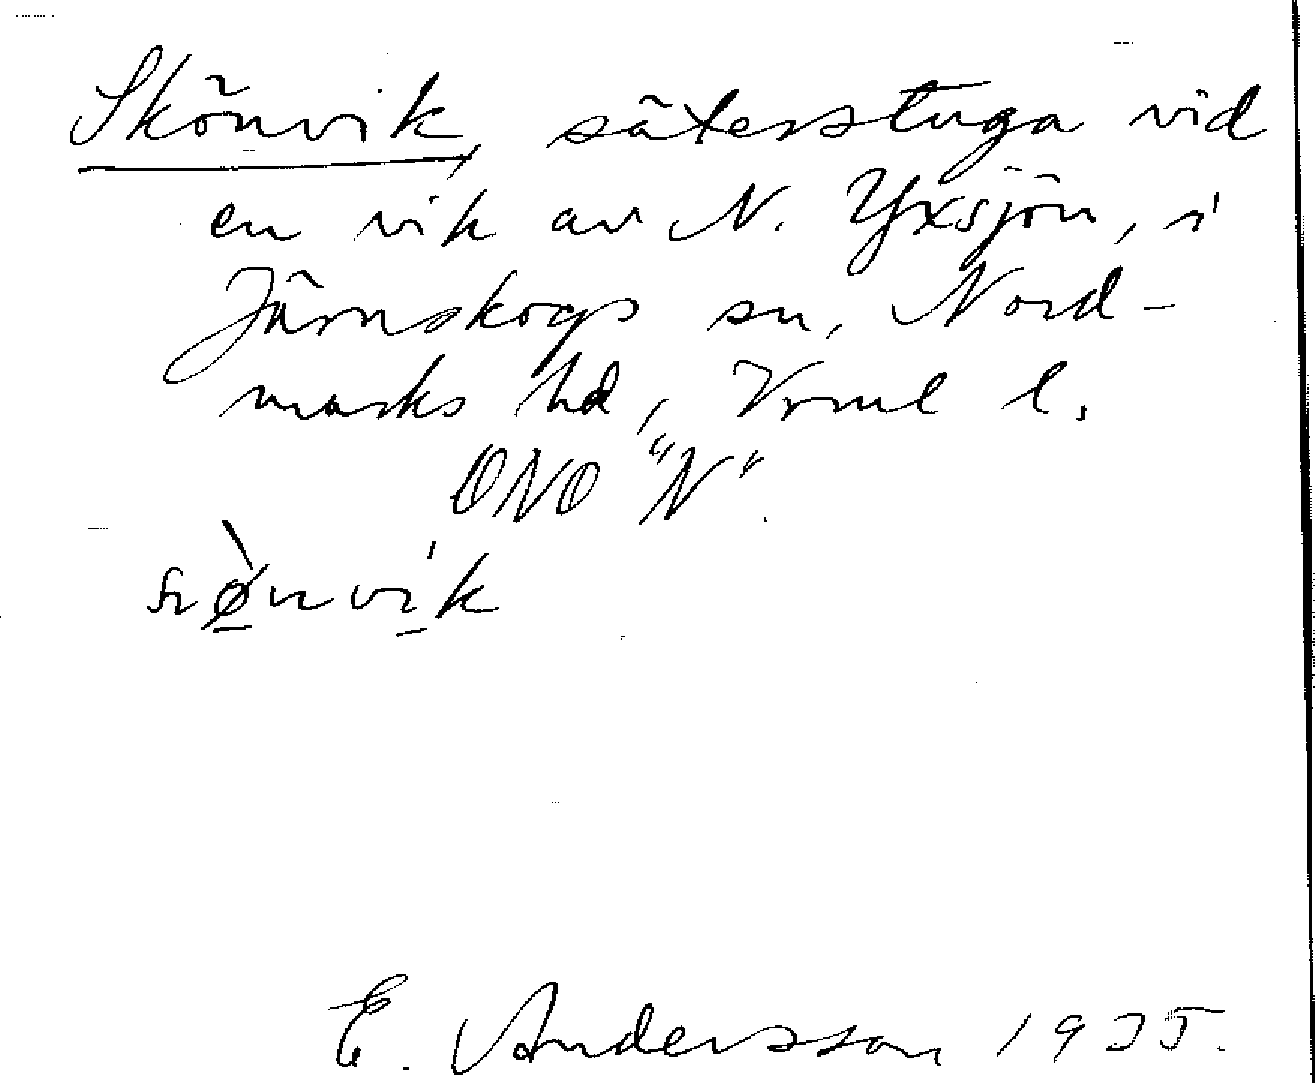 Skönvik, säterstuga vid
en vik av N. Yxsjön, i
Järnskogs sn, Nord-
marks hd, Vrml l.
ONO "N".
E. Andersson 1935.